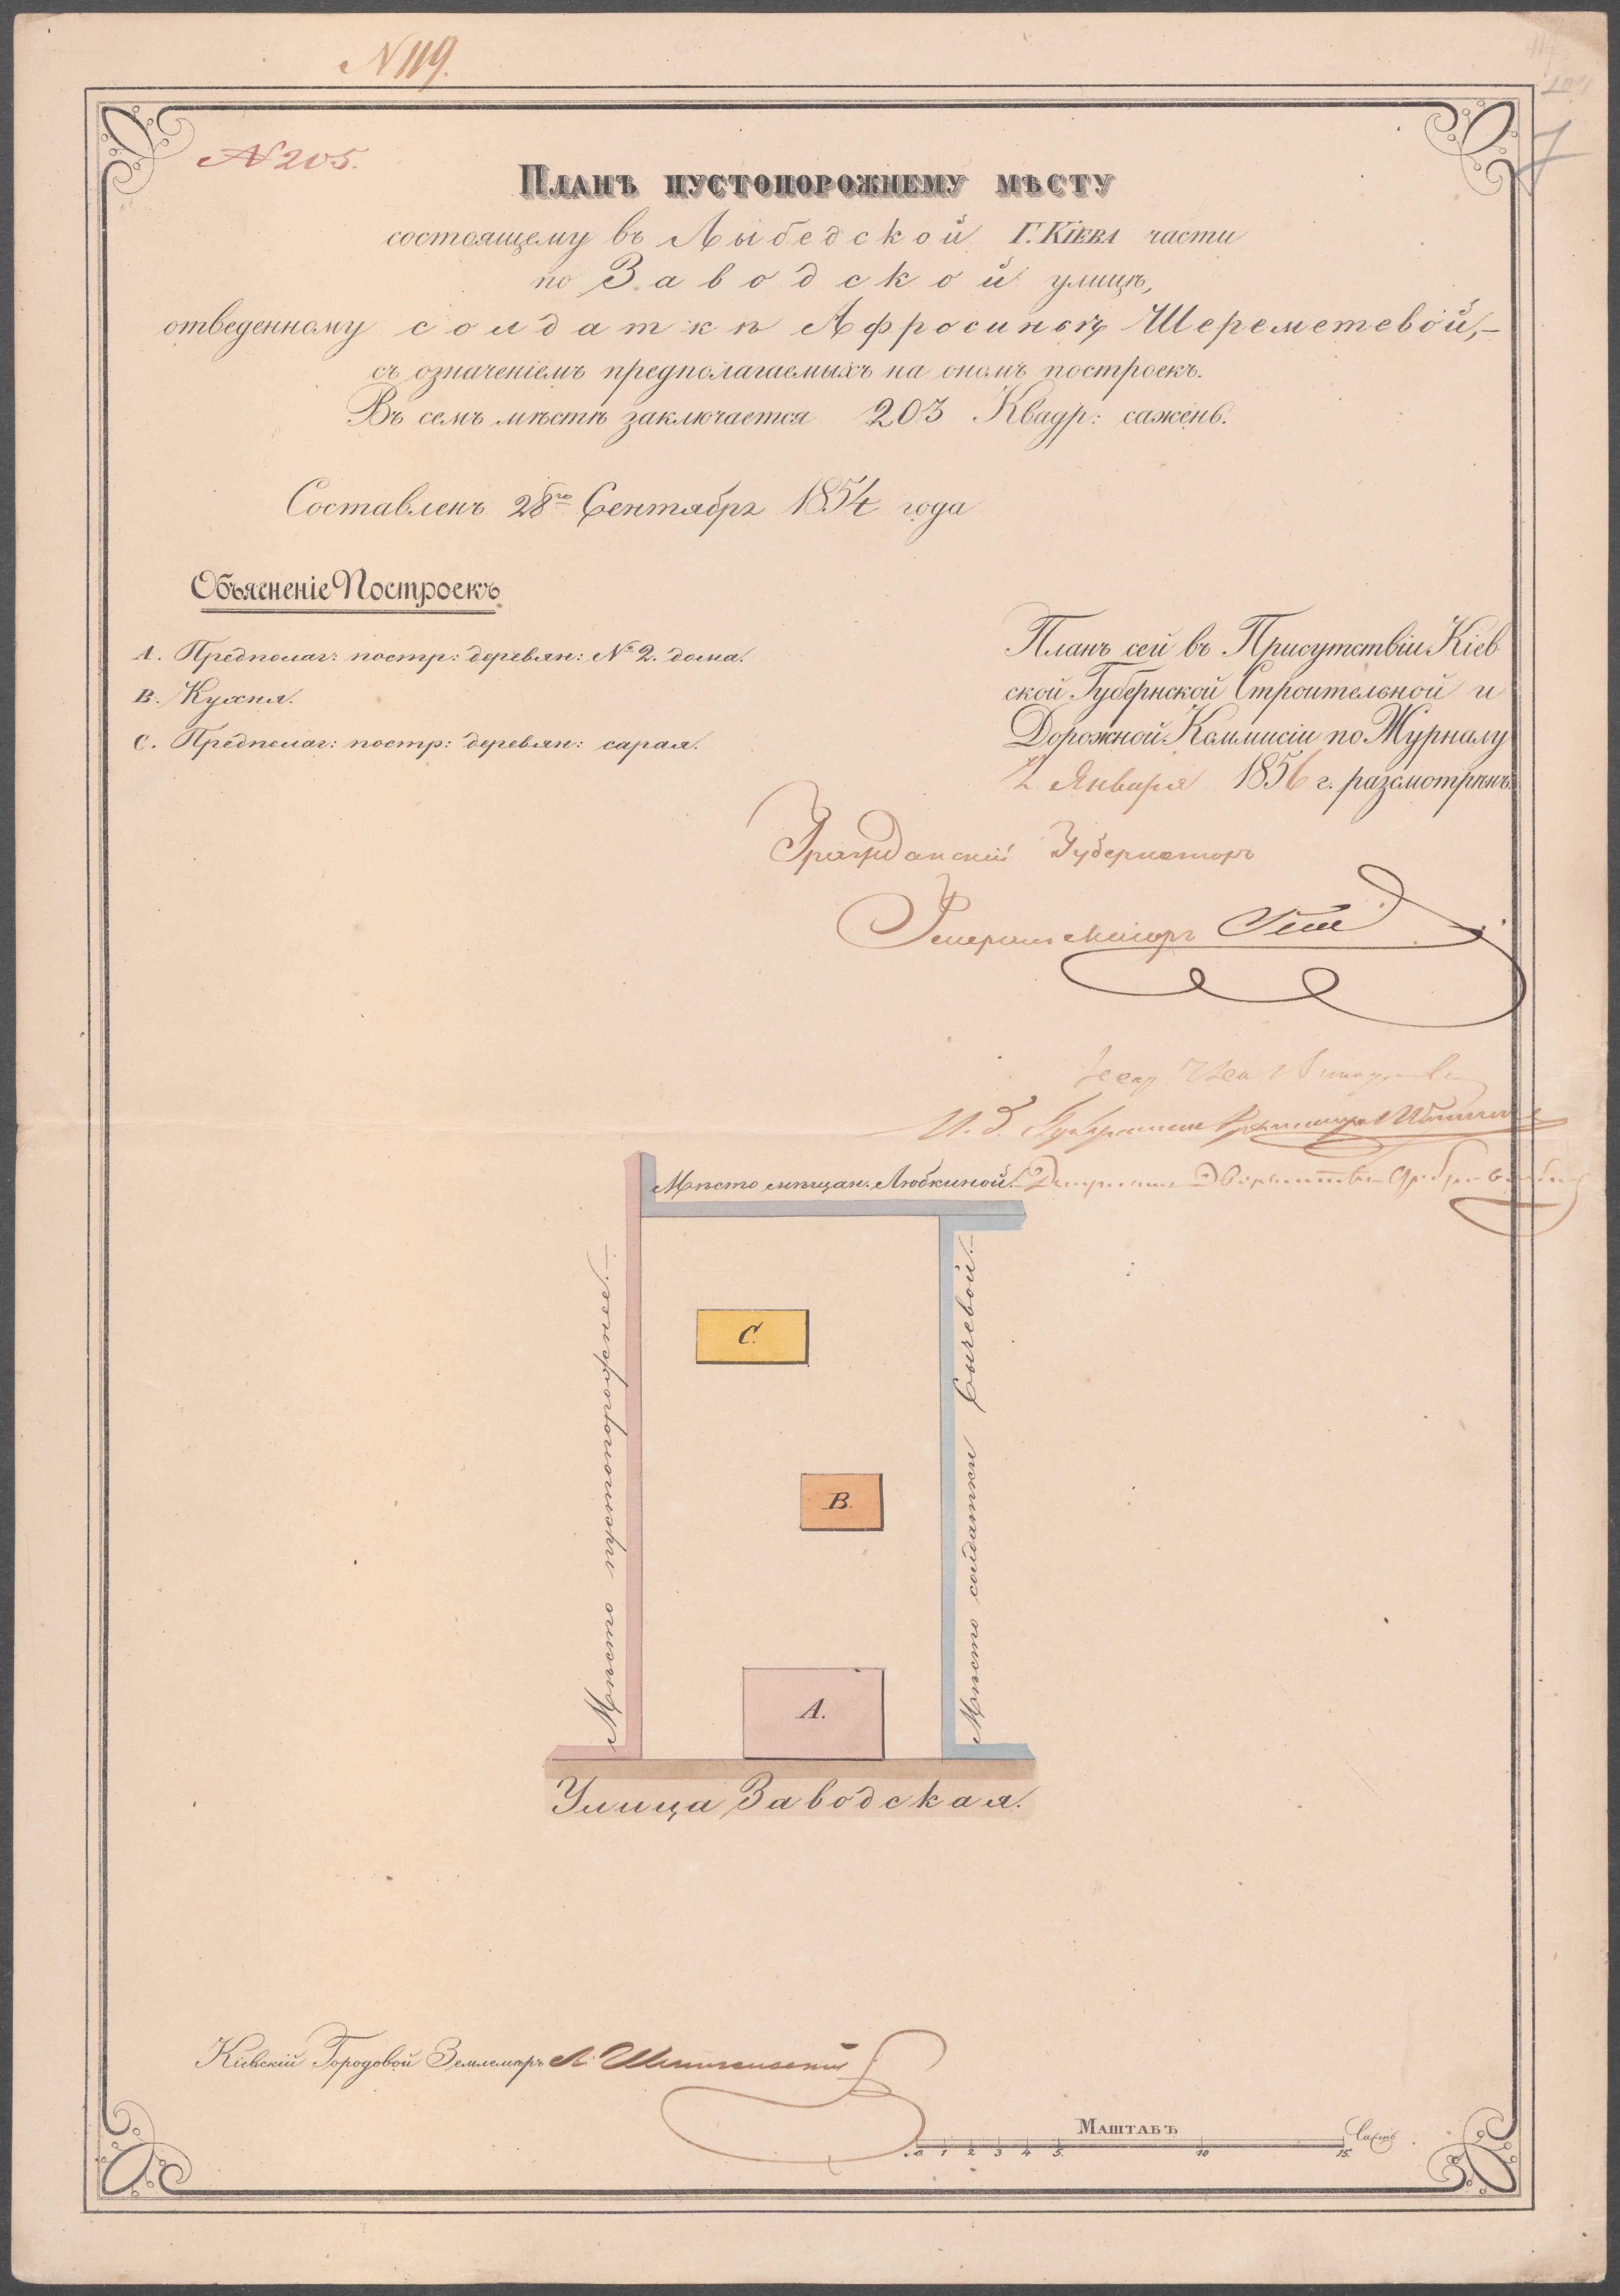 N 119.
N 205.
7
Планъ пустопорожнему мѣсту
состоящему въ Лыбедской Г. Кіева части
по Заводской улицѣ,
отведенному солдаткѣ Афросиньѣ Шереметевой,–
съ означеніемъ предполагаемыхъ на ономъ построекъ.
Въ семъ мѣстѣ заключается 203 Квадр: сажень.
Составленъ 28го Сентября 1854 года
Объясненіе Построекъ.
А. Предполаг: постр: деревян: № 2. дома.
В. Кухня.
С. Предполаг: постр: деревян: сарая.
Планъ сей въ Присутствіи Кіев
ской Губернской Строительной и
Дорожной Коммисіи по Журналу
2 Января 1856 г. разсмотрѣнъ.
Гражданскій Губернаторъ
Генералъ Маіоръ
И. д.
Мѣсто мѣщан: Любкиной.
Мѣсто пустопорожнее.–
Мѣсто солдатки Сычевой.–
С.
В.
А.
Улица Заводская.
Кіевскій Городовой Землемѣръ А.
Маштабъ
0 1 2 3 4 5. 10 15. Сажень